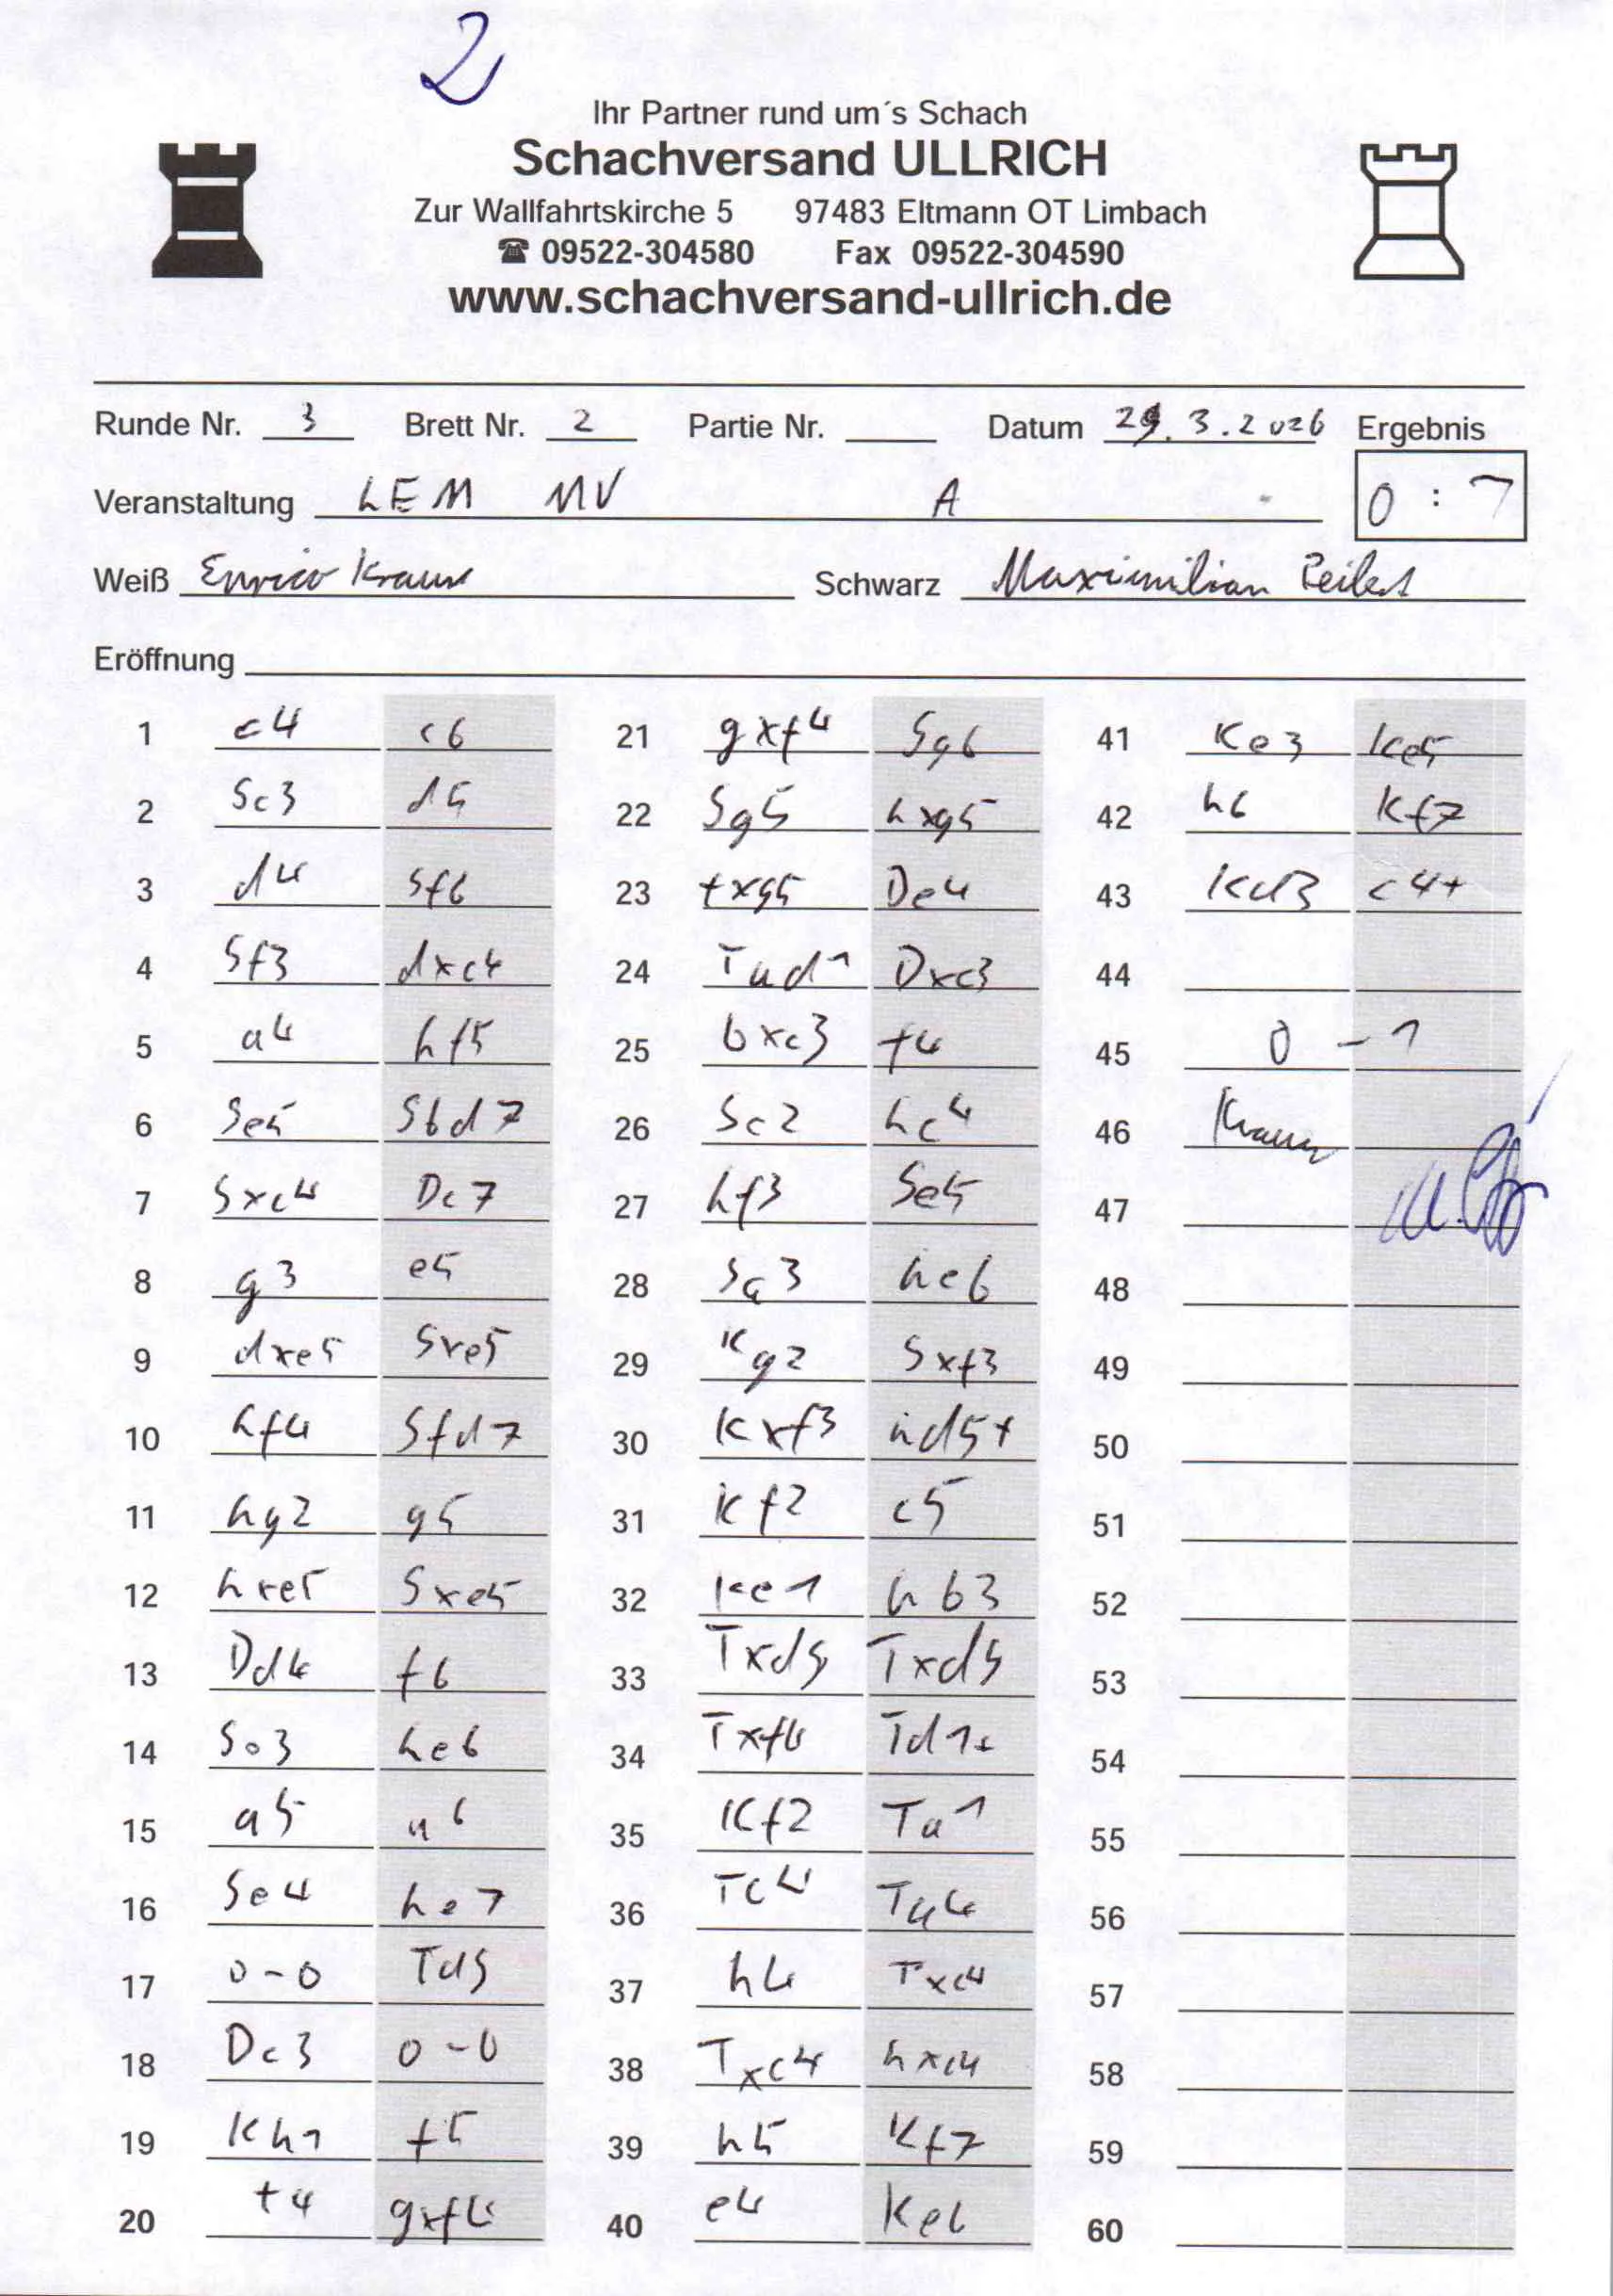 2
Ihr Partner rund um´s Schach
Schachversand ULLRICH
Zur Wallfahrtskirche 5 97483 Eltmann OT Limbach
☎ 09522-304580 Fax 09522-304590
www.schachversand-ullrich.de
Runde Nr. 3 Brett Nr. 2 Partie Nr. Datum 29.3.2026 Ergebnis
Veranstaltung LEM MV A 0 : 1
Weiß Enrico Kraus Schwarz Maximilian
Eröffnung
1 c4 c6 21 gxf4 Sg6 41 Ke3 Ke5
2 Sc3 d5 22 Sg5 hxg5 42 h6 Kf7
3 d4 Sf6 23 fxg5 De4 43 Kd3 c4+
4 Sf3 dxc4 24 Tad1 Dxc3 44
5 a4 Lf5 25 bxc3 f4 45 0 - 1
6 Se5 Sbd7 26 Sc2 Lc4 46 Kraus
7 Sxc4 Dc7 27 Lf3 Se5 47
8 g3 e5 28 Sa3 Le6 48
9 dxe5 Sxe5 29 Kg2 Sxf3 49
10 Lf4 Sfd7 30 Kxf3 Ld5+ 50
11 Lg2 g5 31 Kf2 c5 51
12 Lxe5 Sxe5 32 Ke1 Lb3 52
13 Dd4 f6 33 Txd8 Txd8 53
14 Se3 Le6 34 Txf4 Td1+ 54
15 a5 a6 35 Kf2 Ta1 55
16 Se4 Le7 36 Tc4 Ta4 56
17 0-0 Td8 37 h4 Txc4 57
18 Dc3 0-0 38 Txc4 Lxc4 58
19 Kh1 f5 39 h5 Kf7 59
20 f4 gxf4 40 e4 Ke6 60